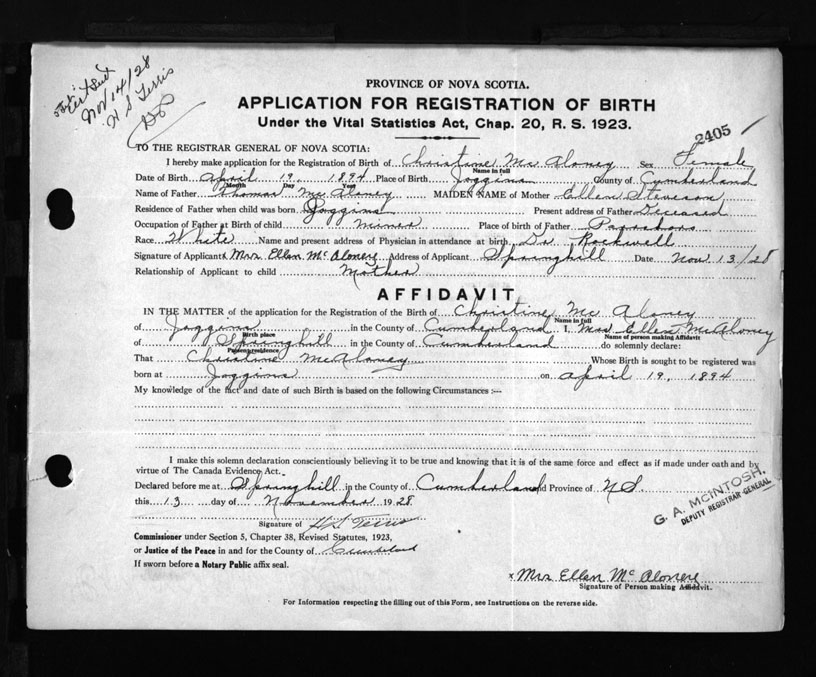 Cert Sent
Nov 14/28
H S Terris
PROVINCE OF NOVA SCOTIA.
APPLICATION FOR REGISTRATION OF BIRTH
Under the Vital Statistics Act, Chap. 20, R. S. 1923.
2405
TO THE REGISTRAR GENERAL OF NOVA SCOTIA:
I hereby make application for the Registration of Birth of Christine Mc Aloney Sex Female
Name in full
Date of Birth April 19, 1894 Place of Birth Joggins County of Cumberland
Month Day Year
Name of Father Thomas Mc Aloney MAIDEN NAME of Mother Ellen Steveson
Residence of Father when child was born Joggins Present address of Father Deceased
Occupation of Father at Birth of child miner Place of birth of Father Parrsboro
Race White Name and present address of Physician in attendance at birth Dr Rockwell
Signature of Applicant x Mrs Ellen Mc Alonere Address of Applicant Springhill Date Nov 13/28
Relationship of Applicant to child Mother
AFFIDAVIT
IN THE MATTER of the application for the Registration of the Birth of Christine Mc Aloney
Name in full
of Joggins in the County of Cumberland I, Mrs Ellen McAloney
Birth place Name of person making Affidavit
of Springhill in the County of Cumberland do solemnly declare:
Persons residence
That Christine McAloney Whose Birth is sought to be registered was
born at Joggins on April 19, 1894
My knowledge of the fact and date of such Birth is based on the following Circumstances :—
I make this solemn declaration conscientiously believing it to be true and knowing that it is of the same force and effect as if made under oath and by
virtue of The Canada Evidence Act.
Declared before me at Springhill in the County of Cumberland and Province of N S.
this 13 day of November 1928
G. A. McINTOSH.
DEPUTY REGISTRAR GENERAL
Signature of H S Terris
Commissioner under Section 5, Chapter 38, Revised Statutes, 1923,
or Justice of the Peace in and for the County of Cumberland
If sworn before a Notary Public affix seal.
x Mrs Ellen Mc Alonere
Signature of Person making Affidavit.
For Information respecting the filling out of this Form, see Instructions on the reverse side.